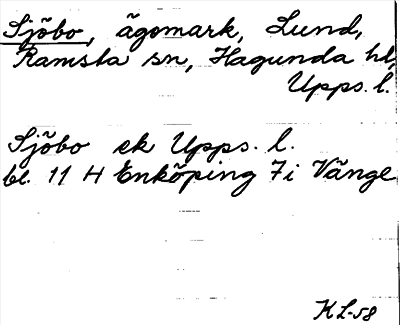 Sjöbo, ägomark, Lund,
Ramsta sn, Hagunda hd,
Upps. l.
Sjöbo ek Upps. l.
bl. 11 H Enköping 7i Vänge
KL-58